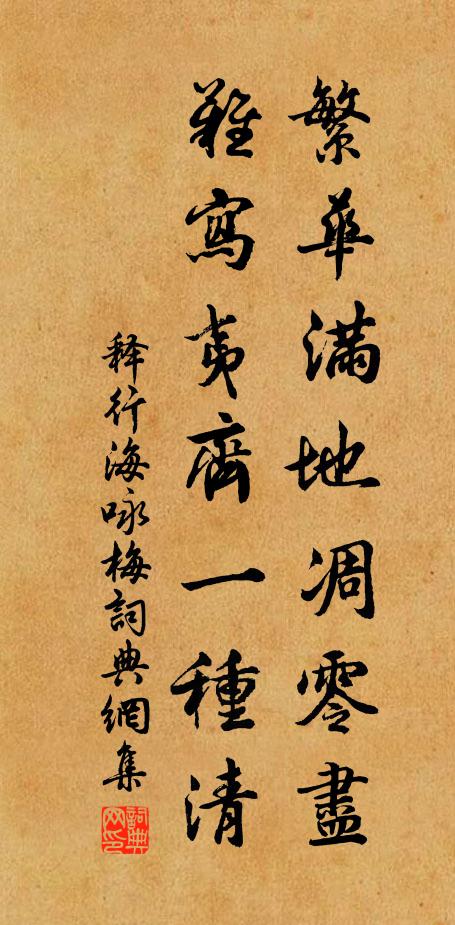 繁華滿地凋零盡
難寫夷齊一種清
释行海咏梅詞典網集
詞典网印